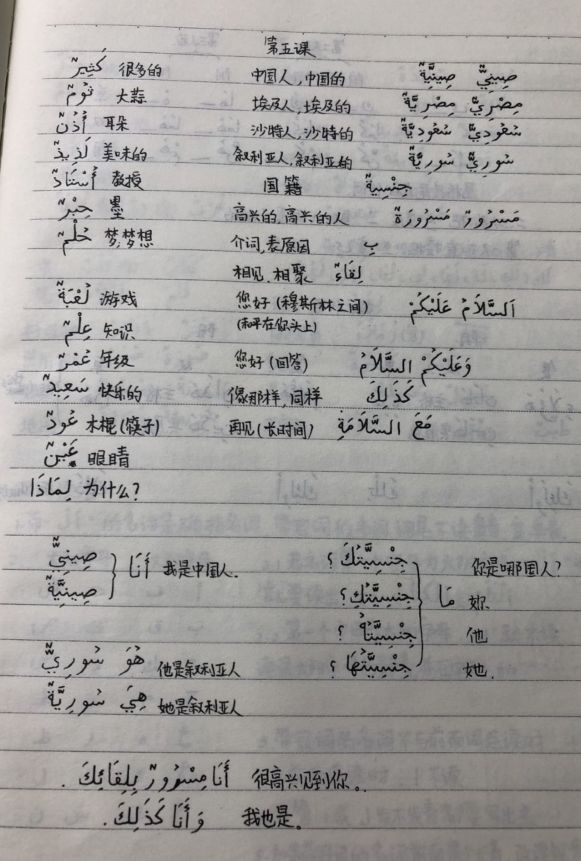 第五课
كَثِيرٌ 很多的 中国人,中国的 صِينِيٌّ صِينِيَّةٌ
ثُومٌ 大蒜 埃及人,埃及的 مِصْرِيٌّ مِصْرِيَّةٌ
أُذُنٌ 耳朵 沙特人,沙特的 سُعُودِيٌّ سُعُودِيَّةٌ
لَذِيذٌ 美味的 叙利亚人,叙利亚的 سُورِيٌّ سُورِيَّةٌ
أُسْتَاذٌ 教授 国籍 جِنْسِيَّةٌ
حِبْرٌ 墨 高兴的,高兴的人 مَسْرُورٌ مَسْرُورَةٌ
حُلْمٌ 梦;梦想 介词,表原因 بِ
相见,相聚 لِقَاءٌ
لُعْبَةٌ 游戏 您好(穆斯林之间) اَلسَّلَامُ عَلَيْكُمْ
عِلْمٌ 知识 (和平在你头上)
عُمْرٌ 年级 您好(回答) وَعَلَيْكُمْ السَّلَامُ
سَعِيدٌ 快乐的 像那样,同样 كَذَلِكَ
عُودٌ 木棍(筷子) 再见(长时间) مَعَ السَّلَامَةِ
عَيْنٌ 眼睛
لِمَاذَا 为什么?
صِينِيٌّ أَنَا 我是中国人. جِنْسِيَّتُكَ ؟ 你是哪国人?
صِينِيَّةٌ جِنْسِيَّتُكِ ؟ مَا 妳
جِنْسِيَّتُهُ ؟ 他
هُوَ سُورِيٌّ 他是叙利亚人 جِنْسِيَّتُهَا ؟ 她.
هِيَ سُورِيَّةٌ 她是叙利亚人
أَنَا مَسْرُورٌ بِلِقَائِكَ . 很高兴见到你。
وَ أَنَا كَذَلِكَ . 我也是。